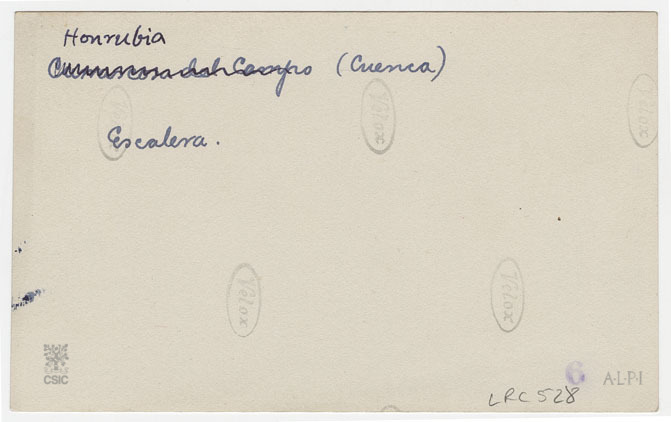 Honrubia
Carrascosa del Campo (Cuenca)
Velox
Velox
Velox
Escalera.
Velox
Velox
CSIC
6
A·L·P·I
LRC 528